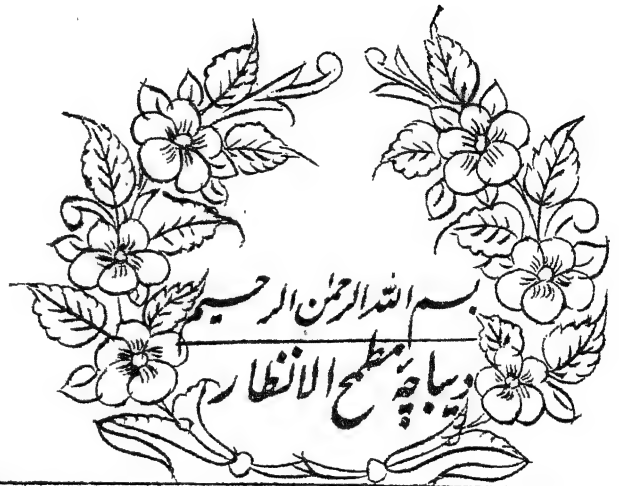 بسم الله الرحمٰن الرحیم
دیباچۂ مطمح الانظار